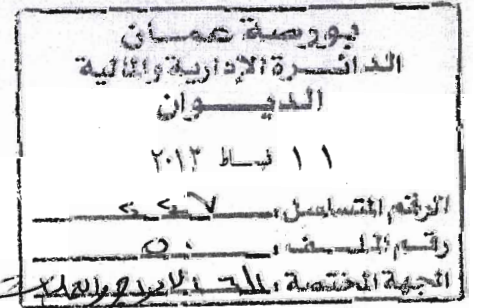 بورصة عمان
الدائرة الإدارية والمالية
الديوان
١١ شباط ٢٠١٣
الرقم المتسلسل: ٢٢٧
رقم الملف: ٥٠
الجهة المختصة: